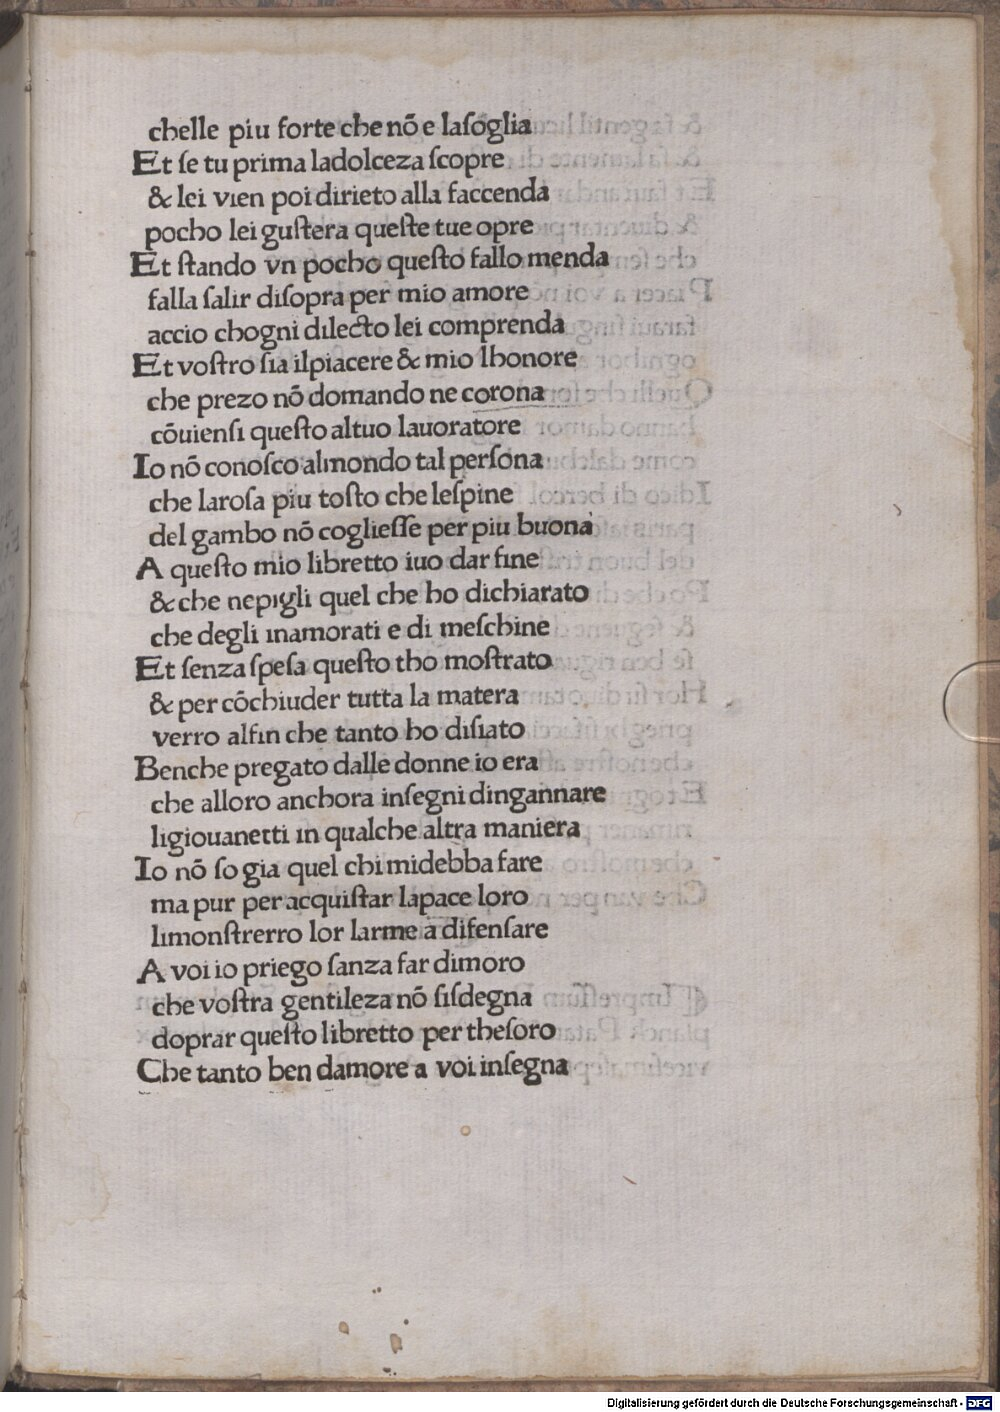 chelle piu forte che nõ e laſoglia
Et ſe tu prima ladolceza ſcopre
& lei vien poi dirieto alla faccenda
pocho lei guſtera queſte tue opre
Et ſtando vn pocho queſto fallo menda
falla ſalir diſopra per mio amore
accio chogni dilecto lei comprenda
Et voſtro ſia ilpiacere & mio lhonore
che prezo nõ domando ne corona
cõuienſi queſto altuo lauoratore
Io nõ conoſco almondo tal perſona
che laroſa piu toſto che leſpine
del gambo nõ coglieſſe per piu buona
A queſto mio libretto iuo dar fine
& che nepigli quel che ho dichiarato
che degli inamorati e di meſchine
Et ſenza ſpeſa queſto tho moſtrato
& per cõchiuder tutta la matera
verro alfin che tanto ho diſiato
Benche pregato dalle donne io era
che alloro anchora inſegni dingannare
ligiouanetti in qualche altra maniera
Io nõ ſo gia quel chi midebba fare
ma pur per acquiſtar lapace loro
limonſtrerro lor larme a difenſare
A voi io priego ſanza far dimoro
che voſtra gentileza nõ ſiſdegna
doprar queſto libretto per theſoro
Che tanto ben damore a voi inſegna
Digitalisierung gefördert durch die Deutsche Forschungsgemeinschaft - DFG